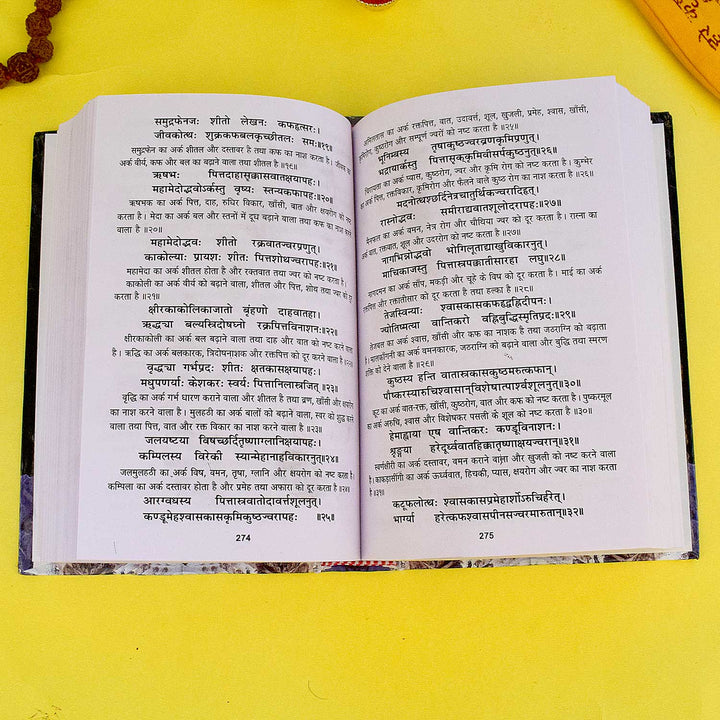 समुद्रफेनजः शीतो लेखनः कफहृत्सरः।
जीवकोत्थः शुक्रकफबलकृच्छीतलः समः॥१९॥
समुद्रफेन का अर्क शीतल और दस्तावर है तथा कफ का नाश करता है। जीवक का
अर्क वीर्य, कफ और बल का बढ़ाने वाला तथा शीतल है॥१९॥
ऋषभः पित्तदाहासृक्कासवातक्षयापहः।
महामेदोद्भवोऽर्कस्तु वृष्यः स्तन्यकफापहः॥२०॥
ऋषभक का अर्क पित्त, दाह, रुधिर विकार, खाँसी, वात और क्षयरोग को नष्ट
करता है। मेदा का अर्क बल और स्तनों में दूध बढ़ाने वाला तथा कफ का नाश करने
वाला है॥२०॥
महामेदोद्भवः शीतो रक्तवातज्वरप्रणुत्।
काकोल्याः प्रायशः शीतः पित्तशोथज्वरापहः॥२१॥
महामेदा का अर्क शीतल होता है और रक्तवात तथा ज्वर को नष्ट करता है।
काकोली का अर्क वीर्य को बढ़ाने वाला, शीतल और पित्त, शोथ तथा ज्वर को दूर
करता है॥२१॥
क्षीरकाकोलिकाजातो बृंहणो दाहवातहा।
ऋद्ध्या बल्यस्त्रिदोषघ्नो रक्तपित्तविनाशनः॥२२॥
क्षीरकाकोली का अर्क बल बढ़ाने वाला तथा दाह और वात को नष्ट करने वाला
है। ऋद्धि का अर्क बलकारक, त्रिदोषनाशक और रक्तपित्त को दूर करने वाला है॥२२॥
वृद्ध्या गर्भप्रदः शीतः क्षतकासक्षयापहः।
मधुपणर्याः केशकरः स्वर्यः पित्तानिलास्रजित्॥२३॥
वृद्धि का अर्क गर्भ धारण कराने वाला और शीतल है तथा व्रण, खाँसी और क्षयरोग
का नाश करने वाला है। मुलहठी का अर्क बालों को बढ़ाने वाला, स्वर को शुद्ध करने
वाला तथा पित्त, वात और रक्त विकार का नाश करने वाला है॥२३॥
जलयष्टया विषच्छर्दितृष्णाग्लानिक्षयापहः।
कम्पिलस्य विरेकी स्यान्मेहानाहविकारनुत्॥२४॥
जलमुलहठी का अर्क विष, वमन, तृषा, ग्लानि और क्षयरोग को नष्ट करता है।
कम्पिला का अर्क दस्तावर होता है और प्रमेह तथा अफारा को दूर करता है॥२४॥
आरग्वधस्य पित्तास्रवातोदावर्त्तशूलनुत्।
कण्डूमेहश्वासकासकृमिकुष्ठज्वरापहः ॥२५॥
274
का अर्क रक्तपित्त, वात, उदावर्त्त, शूल, खुजली, प्रमेह, श्वास, खाँसी,
कृमिरोग, कुष्ठरोग और सम्पूर्ण ज्वरों को नष्ट करता है॥२५॥
भूनिम्बस्य तृषाकुष्ठज्वरव्रणकृमिप्रणुत्।
भद्रायार्कस्तु पित्तासृक्कृमिवीसर्पकुष्ठनुत्॥२६॥
चिरायता का अर्क प्यास, कुष्ठरोग, ज्वर, व्रण और कृमि रोग को नष्ट करता है। कुम्भेर
का अर्क पित्त, रक्तविकार, कृमिरोग और फैलने वाले कुष्ठ रोग का नाश करता है॥२६॥
मदनोत्थश्छर्दिनेत्रचातुर्थिकज्वरादिहृत्।
रास्नोद्भवः समीराद्यवातशूलोदरापहः॥२७॥
मैनफल का अर्क वमन, नेत्र रोग और चौथिया ज्वर को दूर करता है। रास्ना का
अर्क वात, रक्तवात, शूल और उदररोग को नष्ट करता है॥२७॥
नागभित्रोद्भवो भोगिलूताद्याखुविकारनुत्।
माचिकाजस्तु पित्तास्रपक्वातीसारहा लघुः॥२८॥
नागदमन का अर्क साँप, मकड़ी और चूहे के विष को दूर करता है। माई का अर्क
पित्त और रक्तातीसार को दूर करता है तथा हल्का है॥२८॥
तेजस्विन्याः श्वासकासकफहृद्वह्निदीपनः।
ज्योतिष्मत्या वान्तिकरो वह्निबुद्धिस्मृतिप्रदः॥२९॥
तेजबल का अर्क श्वास, खाँसी और कफ का नाशक है तथा जठराग्नि को बढ़ाता
है। मालकाँगनी का अर्क वमनकारक, जठराग्नि को बढ़ाने वाला और बुद्धि तथा स्मरण
शक्ति को देने वाला है॥२९॥
कुष्ठस्य हन्ति वातास्रकासकुष्ठमरुत्कफान्।
पौष्करस्यारुचिश्वासान्विशेषात्पार्श्वशूलनुत्॥३०॥
कूट का अर्क वात-रक्त, खाँसी, कुष्ठरोग, वात और कफ को नष्ट करता है। पुष्करमूल
का अर्क अरुचि, श्वास और विशेषकर पसली के शूल को नष्ट करता है॥३०॥
हेमाह्वाया एष वान्तिकरः कण्डूविनाशनः।
श्रृङ्ग्या हरेदूर्ध्ववातहिक्कातृष्णाक्षयज्वरान्॥३१॥
स्वर्णक्षीरी का अर्क दस्तावर, वमन कराने वाला और खुजली को नष्ट करने वाला
है। काकड़ासींगी का अर्क ऊर्ध्ववात, हिचकी, प्यास, क्षयरोग और ज्वर का नाश करता
है॥३१॥
कटफलोत्थः श्वासकासप्रमेहार्शोऽरुचिर्हरेत्।
भार्ग्या हरेत्कफश्वासपीनसज्वरमारुतान्॥३२॥
275